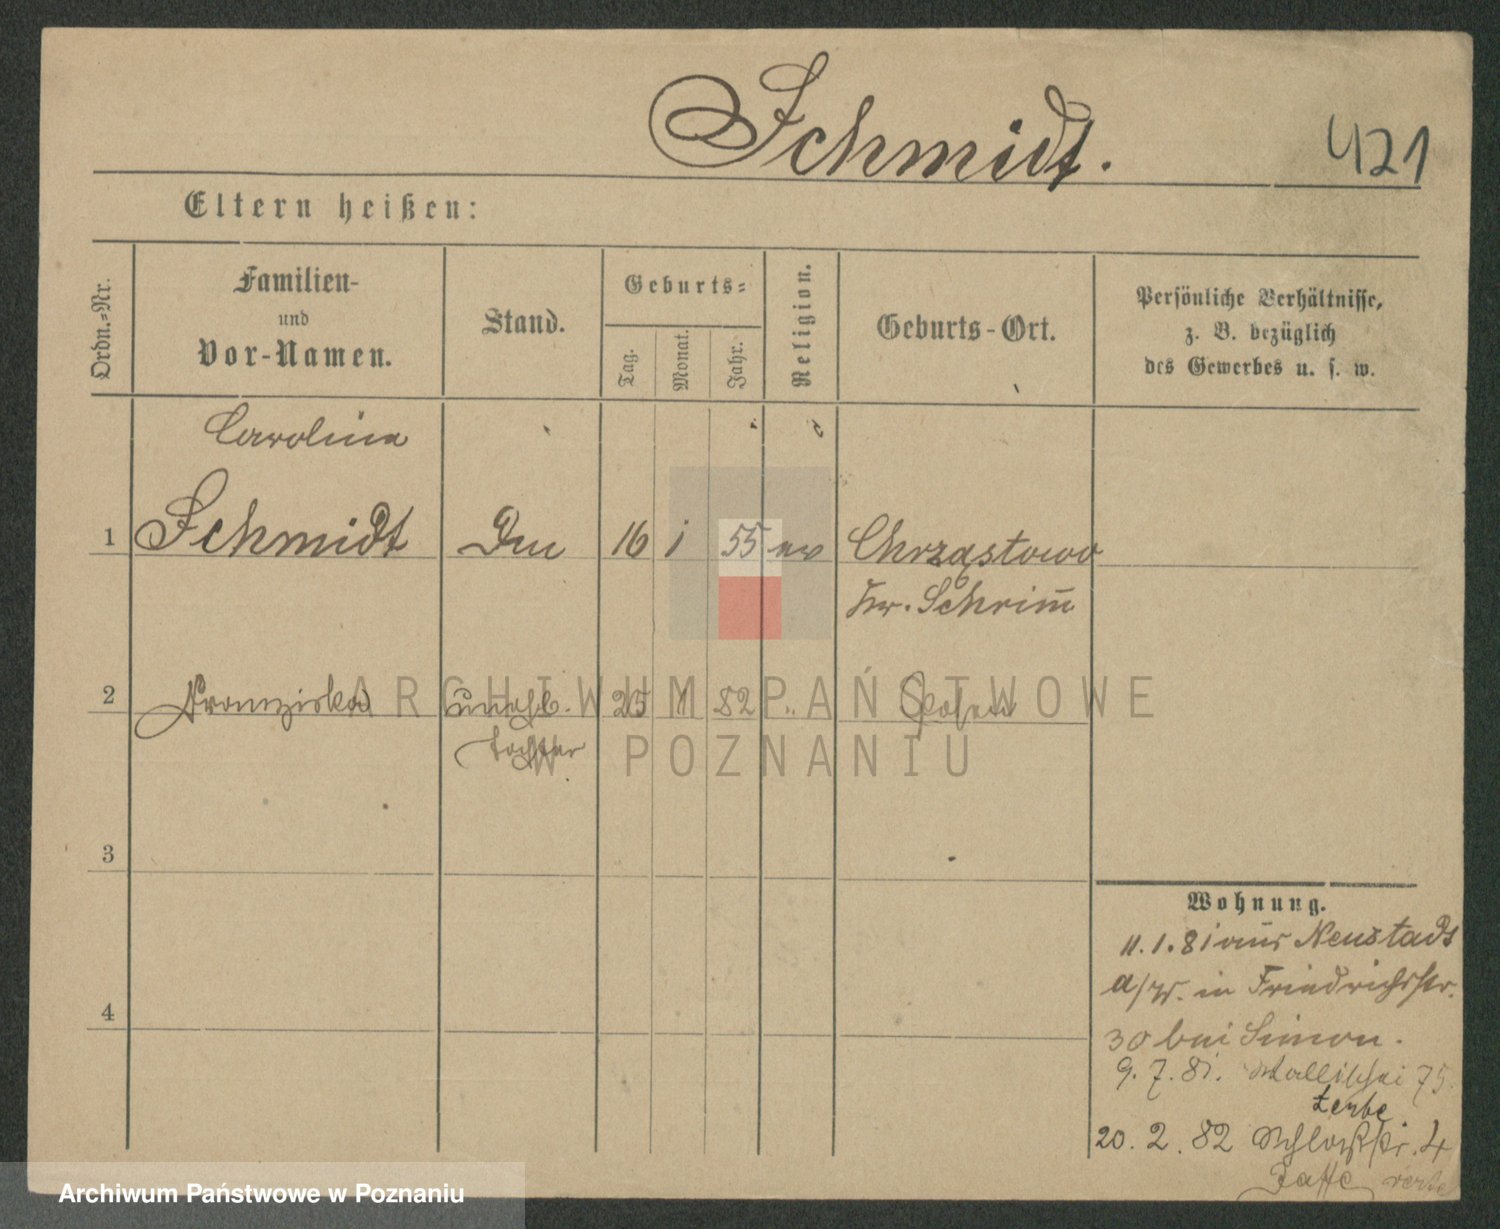 Schmidt.
421
Eltern heißen:
Ordn.-Nr.
Familien-
und
Vor-Namen.
Stand.
Geburts-
Tag.
Monat.
Jahr.
Religion.
Geburts-Ort.
Persönliche Verhältnisse,
z. B. bezüglich
des Gewerbes u. s. w.
Carolina
1 Schmidt 16 1 55 ev Chrząstowo
Kr. Schrim̄
2 Franziska unehl. 25 1 82 " Posen
Tochter
ARCHIWUM PAŃSTWOWE
W POZNANIU
3
4
Wohnung.
11.1.81 aus Neustadt
a/W. in Friedrichsstr.
30 bei Simon.
9.7.81. Wallischei 75.
20.2.82 Schloßstr. 4
Jaffe
Archiwum Państwowe w Poznaniu